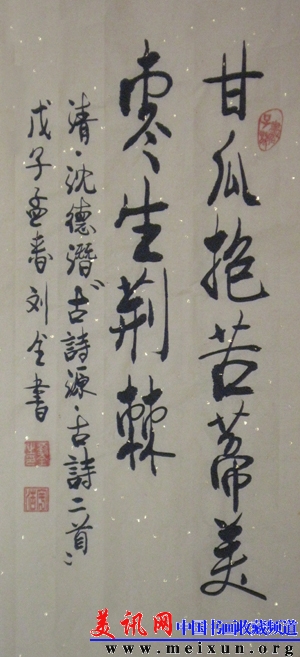 甘瓜抱苦蒂美
枣生荆棘
清·沈德潛"古詩源·古詩二首"
戊子孟春刘全書
美讯网 中国书画收藏频道
www.meixun.org